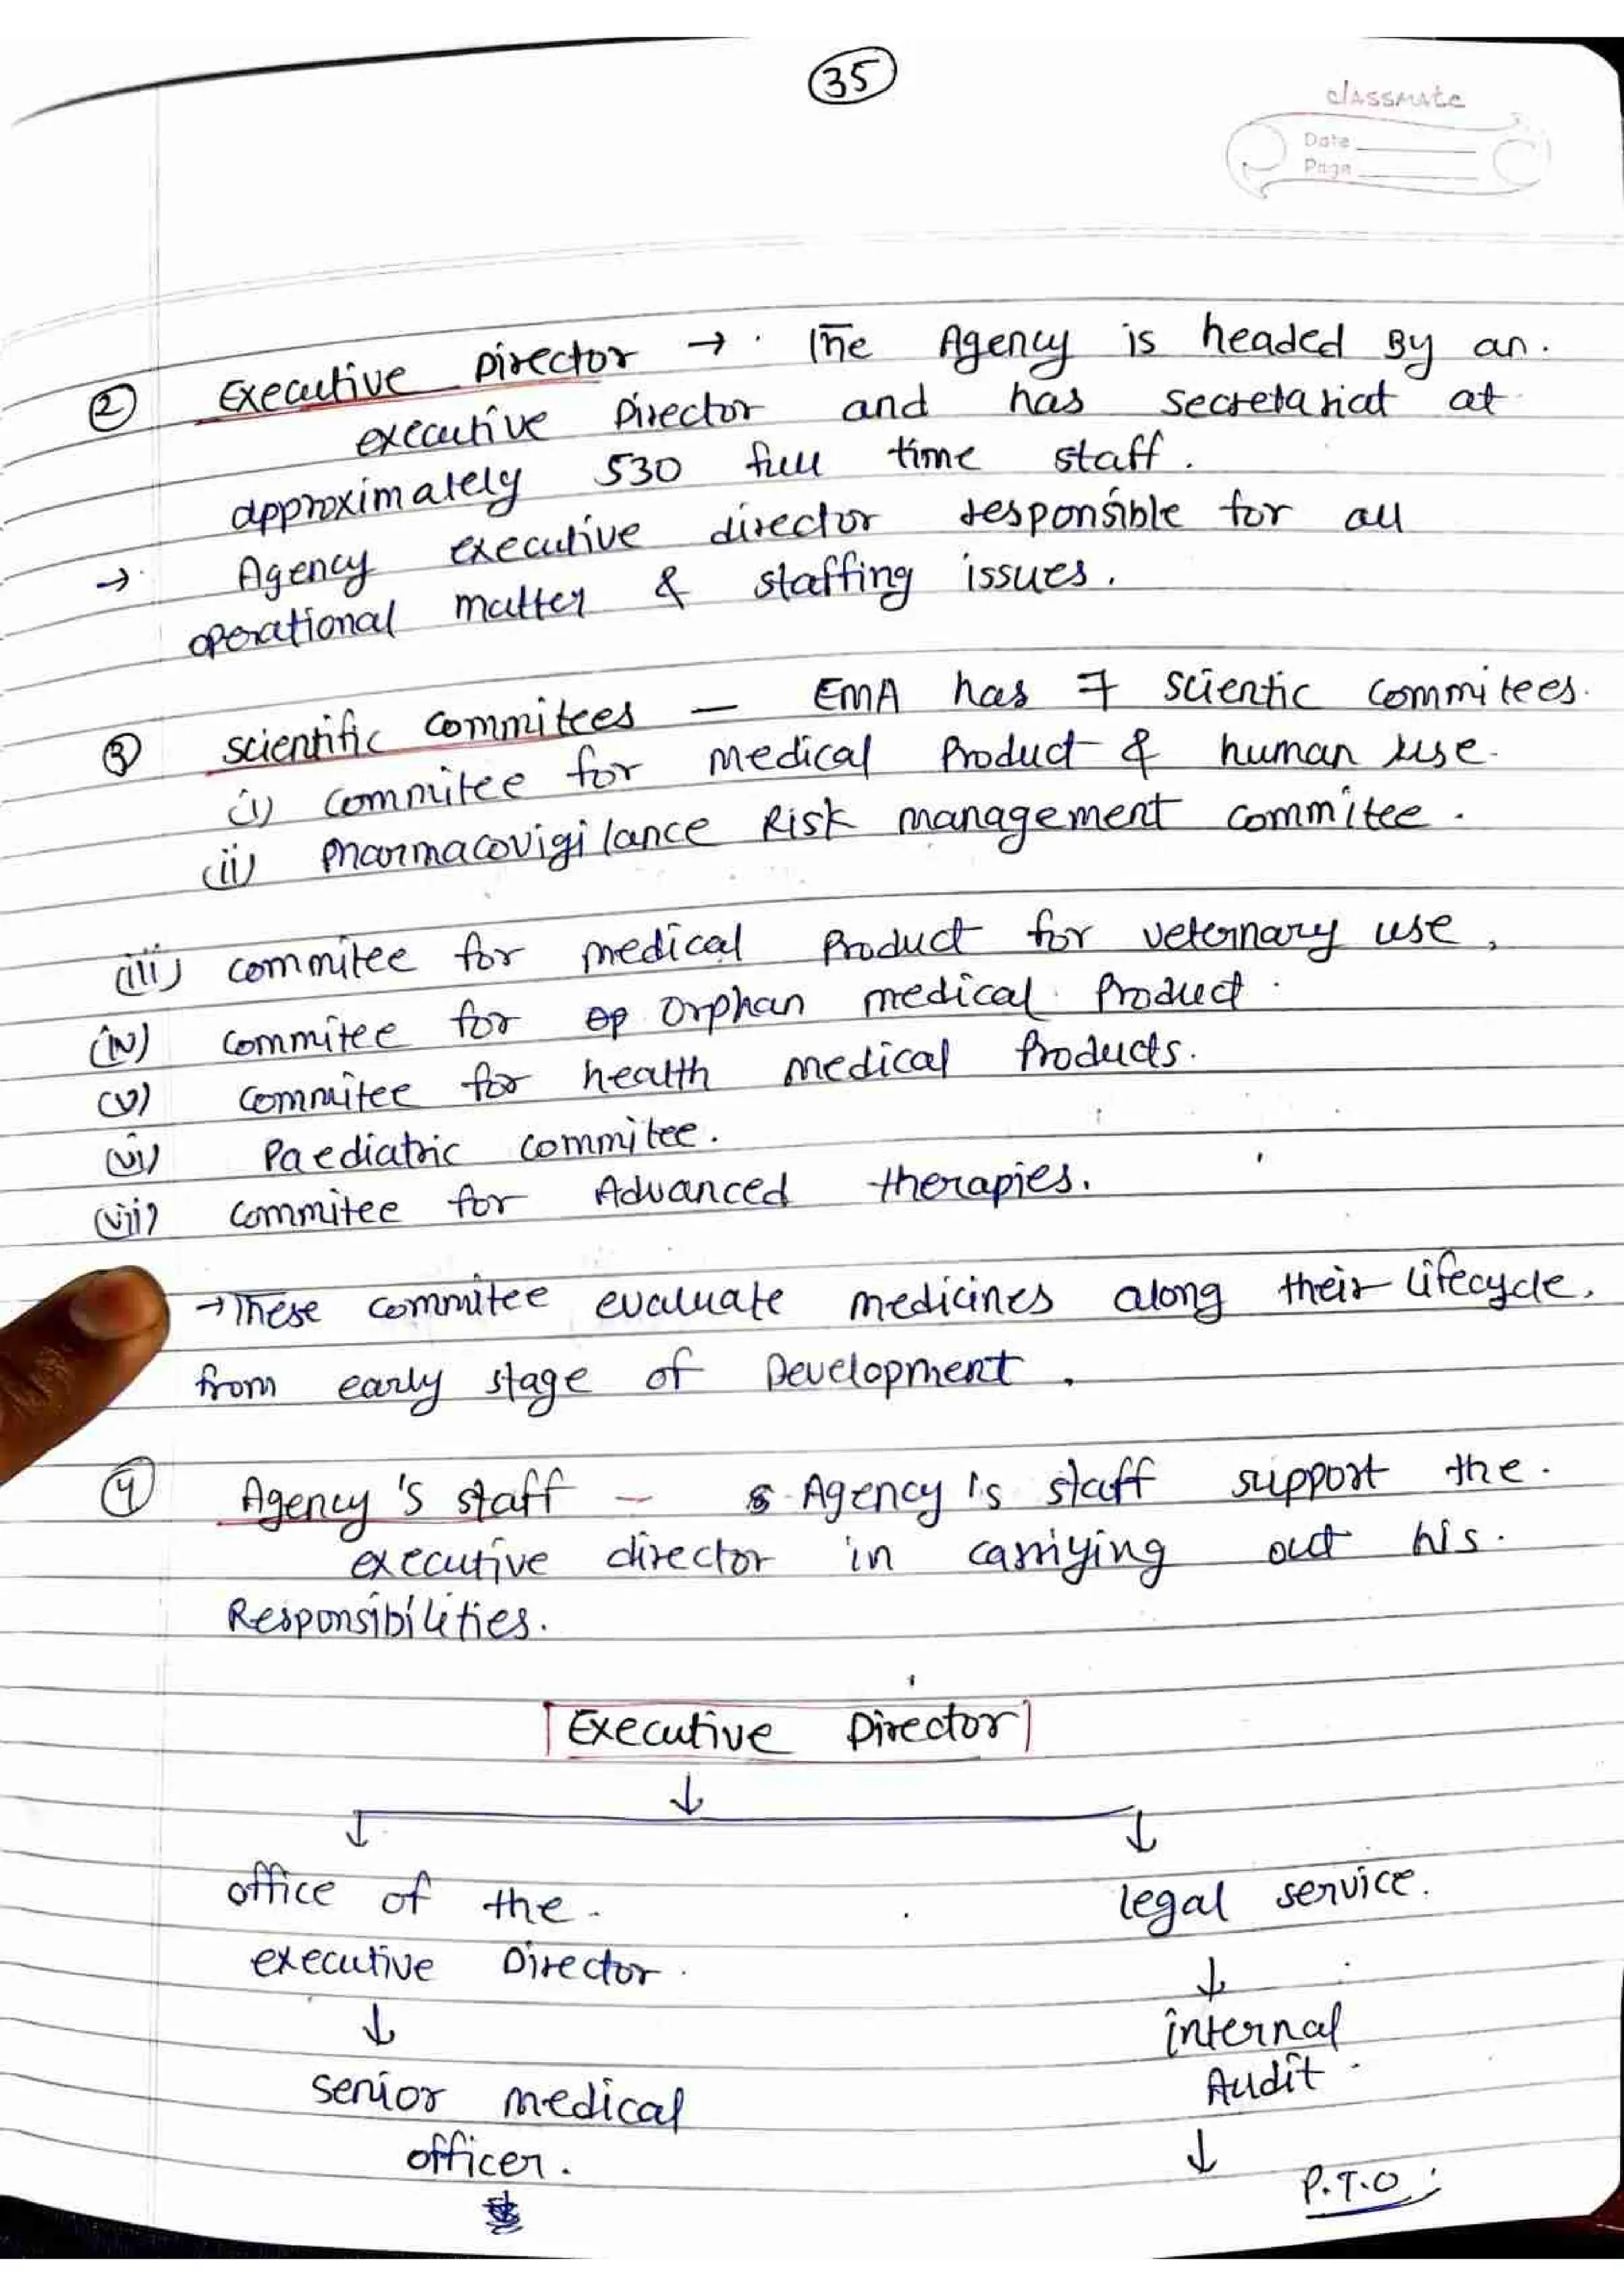 35
classmate
Date
Page
② Executive Director → The Agency is headed By an.
executive Director and has secretariat at
approximately 530 full time staff.
→ Agency executive director responsible for all
operational matter & staffing issues.
③ scientific commitees — EMA has 7 scientic commitees.
(i) commitee for medical Product & human use.
(ii) Pharmacovigilance Risk management commitee.
(iii) commitee for medical Product for veternary use,
(iv) commitee for Orphan medical Product.
(v) commitee for health medical Products.
(vi) Paediatric commitee.
(vii) commitee for Advanced therapies.
→ These commitee evaluate medicines along their lifecycle,
from early stage of Development.
④ Agency's staff — Agency's staff support the.
executive director in carriying out his.
Responsibilities.
Executive Director
↓
↓ ↓
office of the. legal service.
executive Director. ↓
↓ internal
senior medical Audit.
officer. ↓
P.T.O